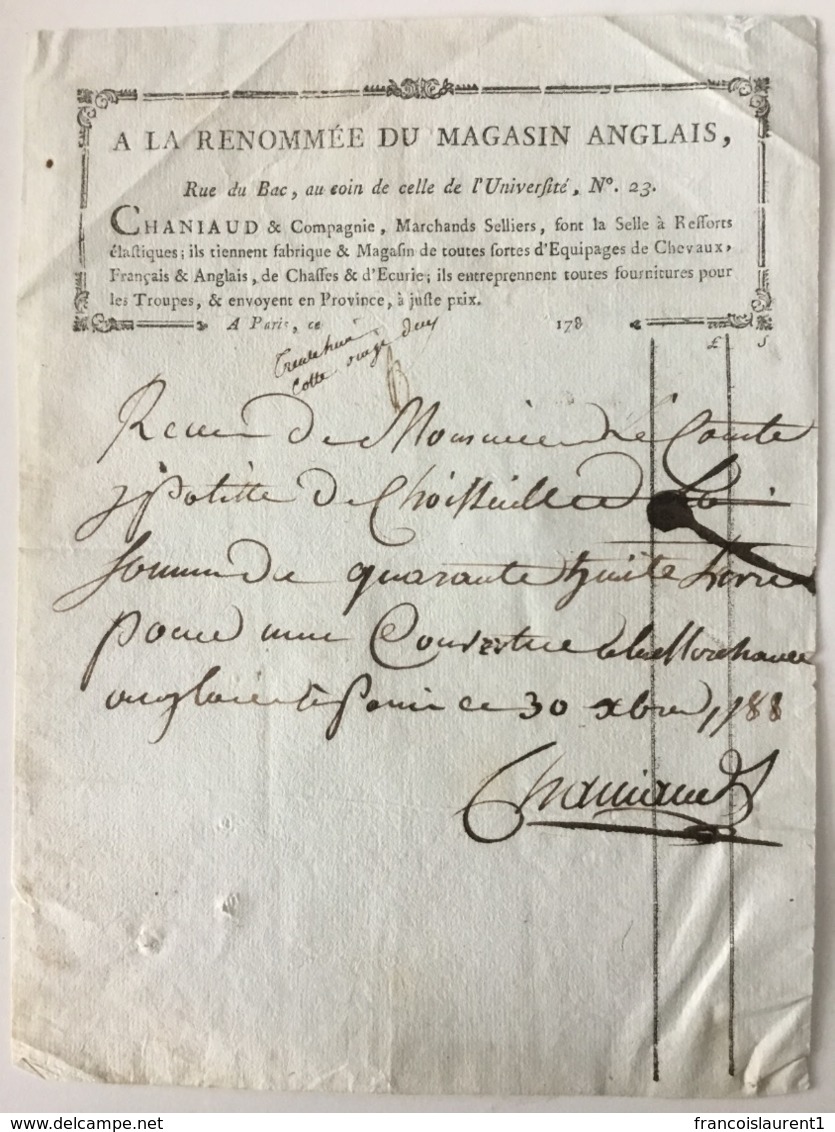 A LA RENOMMÉE DU MAGASIN ANGLAIS,
Rue du Bac, au coin de celle de l'Université, N°. 23.
CHANIAUD & Compagnie, Marchands Selliers, font la Selle à Ressorts
élastiques; ils tiennent fabrique & Magasin de toutes sortes d'Equipages de Chevaux,
Français & Anglais, de Chasses & d'Ecurie; ils entreprennent toutes fournitures pour
les Troupes, & envoyent en Province, à juste prix.
A Paris, ce 178
£ s
Cotte vingt deux
B
Recu De Monsieur Le Comte
ypolitte De Choisseulle La
somme de quarante huite Livre
pour une Couverture
anglaise Paris ce 30 xbre 1788
Chaniaud
delcampe.net
francoislaurent1